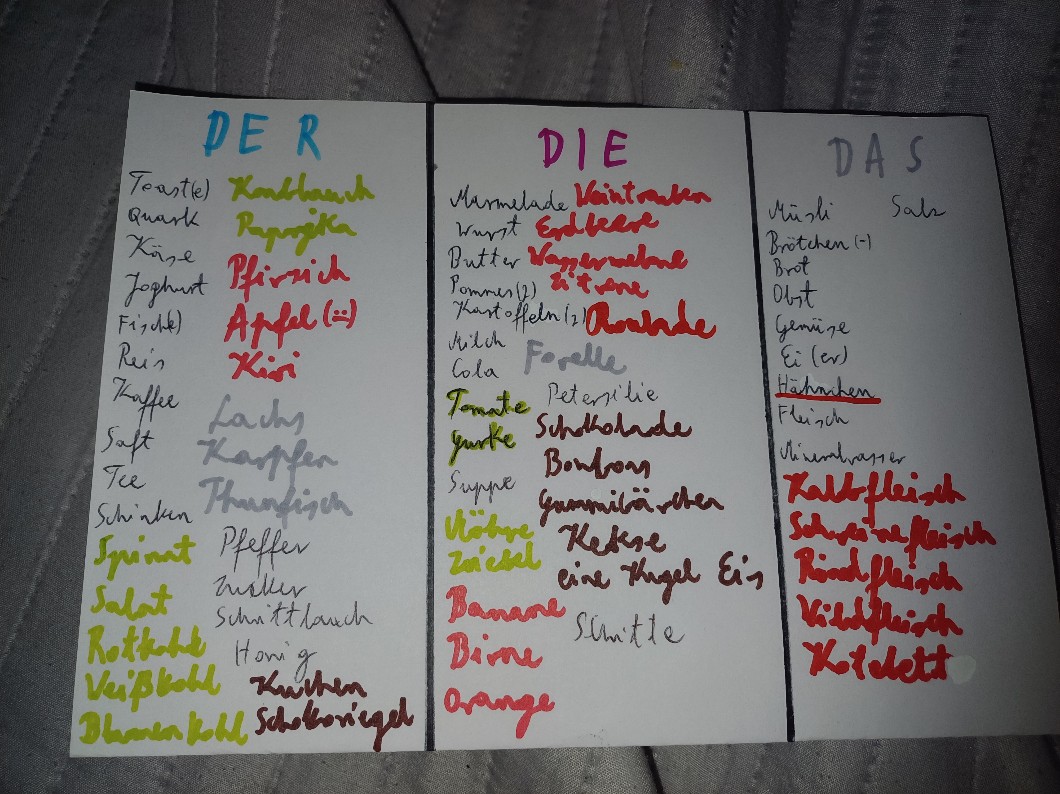 DER
Toast(e)
Quark
Käse
Joghurt
Fisch(e)
Reis
Kaffee
Saft
Tee
Schinken
Spinat
Salat
Rotkohl
Weißkohl
Blumenkohl
Knoblauch
Paprika
Pfirsich
Apfel (:)
Kiwi
Lachs
Karpfen
Thunfisch
Pfeffer
Zucker
Schnittlauch
Honig
Kuchen
Schokoriegel
DIE
Marmelade
Wurst
Butter
Pommes (2)
Kartoffeln (2)
Milch
Cola
Tomate
Gurke
Suppe
Möhre
Zwiebel
Banane
Birne
Orange
Weintrauben
Erdbeere
Wassermelone
Zitrone
Roulade
Forelle
Petersilie
Schokolade
Bonbons
Gummibärchen
Kekse
eine Kugel Eis
Schnitte
DAS
Müsli
Brötchen (-)
Brot
Obst
Gemüse
Ei (er)
Hähnchen
Fleisch
Mineralwasser
Kalbfleisch
Schweinefleisch
Rindfleisch
Wildfleisch
Kotelett
Salz